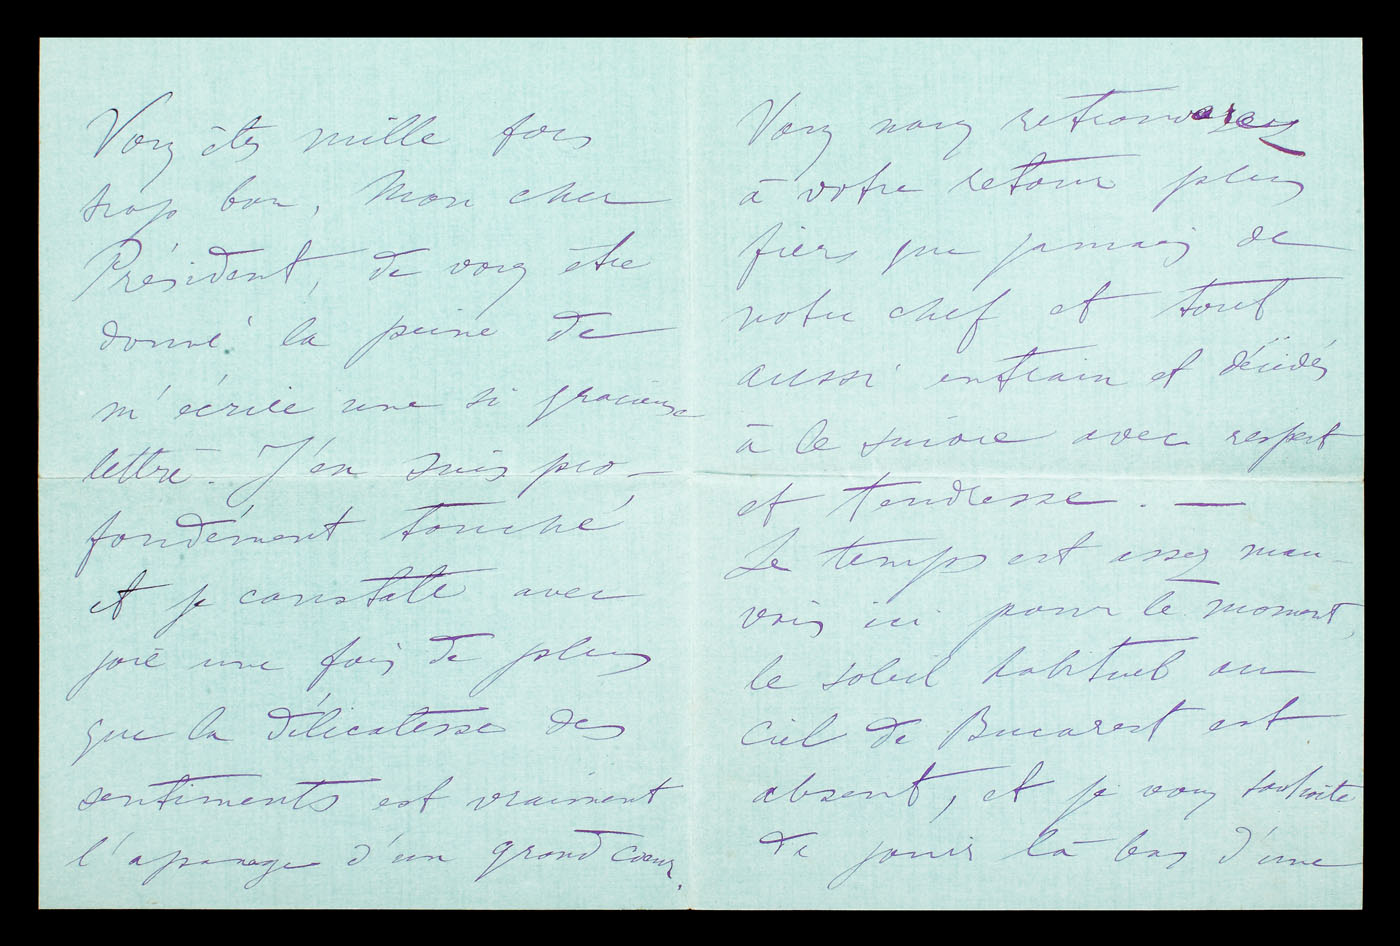 Vous êtes mille fois
trop bon, Mon cher
Président, de vous être
donné la peine de
m'écrire une si gracieuse
lettre. J'en suis pro-
fondément touché
et je constate avec
joie une fois de plus
que la délicatesse des
sentiments est vraiment
l'apanage d'un grand cœur.
Vous nous retrouverez
à votre retour plus
fiers que jamais de
votre chef et tout
aussi entrain et décidés
à le suivre avec respect
et tendresse. —
Le temps est assez mau-
vais ici pour le moment,
le soleil habituel au
ciel de Bucarest est
absent, et je vous souhaite
de jouir là bas d'une